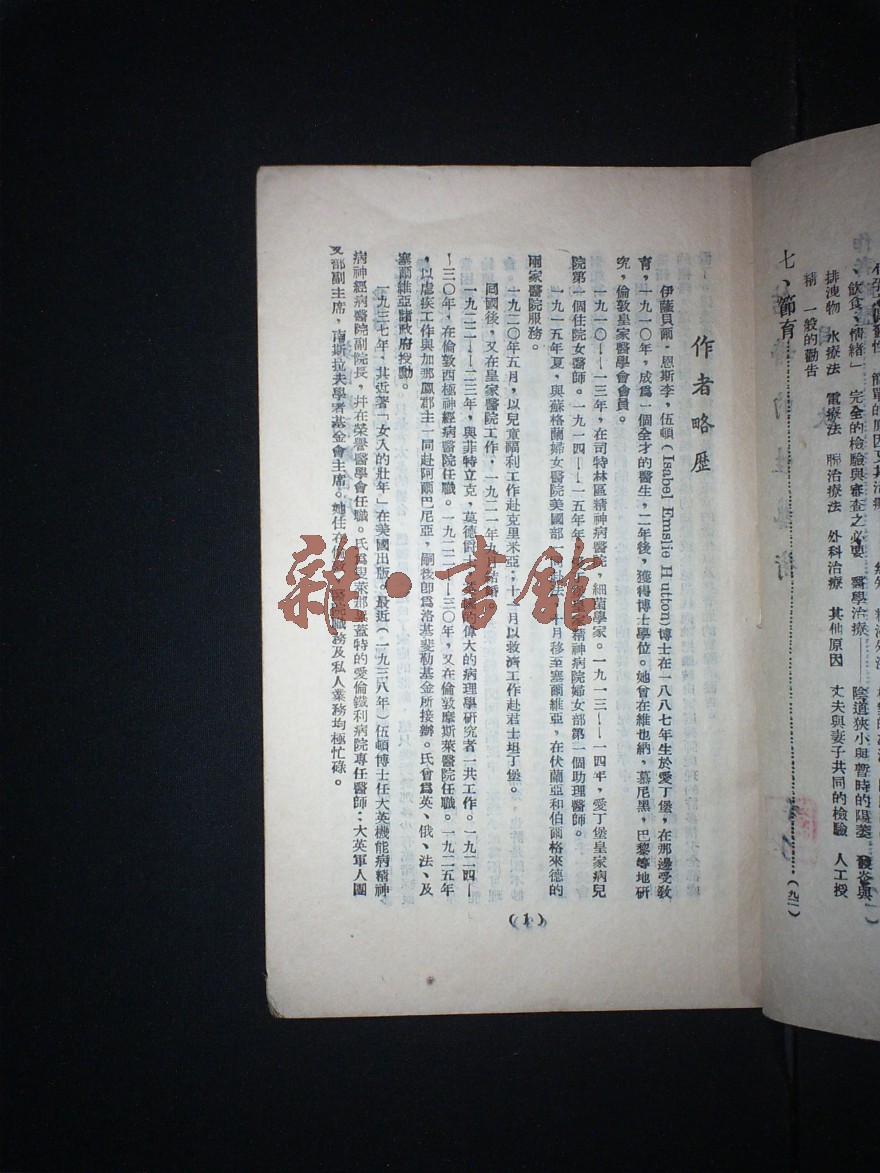 心
、飲食、情緒」 完全的檢驗與審查之必要 醫學治療
陰道狹小與暫時的陽萎
排洩物 水療法 電療法 腺治療法 外科治療 其他原因 丈夫與妻子共同的檢驗 人工授
精 一般的勸告
七、節育……(九二)
作者略歷
伊薩貝爾·恩斯李,伍頓(Isabel Emslio Hutton)博士在一八八七年生於愛丁堡,在那邊受敎
育,一九一〇年,成爲一個全才的醫生,二年後,獲得博士學位。她曾在維也納,慕尼黑,巴黎等地研
究,倫敦皇家醫學會會員。
一九一〇——一三年,在司特林區精神病醫院,細菌學家。一九一三——一四年,愛丁堡皇家病兒
院第一個住院女醫師。一九一四——一五年,皇家精神病院婦女部第一個助理醫師。
一九一五年夏,與蘇格蘭婦女醫院美國部一同赴法,十月移至塞爾維亞,在伏蘭亞和伯爾格來德的
兩家醫院服務。
一九二〇年五月,以兒童福利工作赴克里米亞;十一月以救濟工作赴君士坦丁堡。
囘國後,又在皇家醫院工作,一九二一年九月結婚。
一九二二——二三年,與菲特立克,莫德爵士,英國的偉大的病理學研究者一共工作。一九二四—
—三〇年,在倫敦西極神經病醫院任職。一九二二——三〇年,又在倫敦摩斯萊醫院任職。一九二五年
,以虐疾工作與加那鳳郡主一同赴阿爾巴尼亞,嗣後卽爲洛基斐勒基金所接辦。氏曾爲英、俄、法、及
塞爾維亞諸政府授勳。
一九三七年,其近著「女人的壯年」在美國出版。最近(一九三八年)伍頓博士任大英機能病精神
病神經病醫院副院長,幷在榮譽醫學會任職。氏爲叟萊那葉蓋特的愛倫鐵利病院專任醫師:大英軍人團
支部副主席,南斯拉夫學者基金會主席。她住在倫敦,醫院職務及私人業務均極忙碌。
(1)
雜·書館